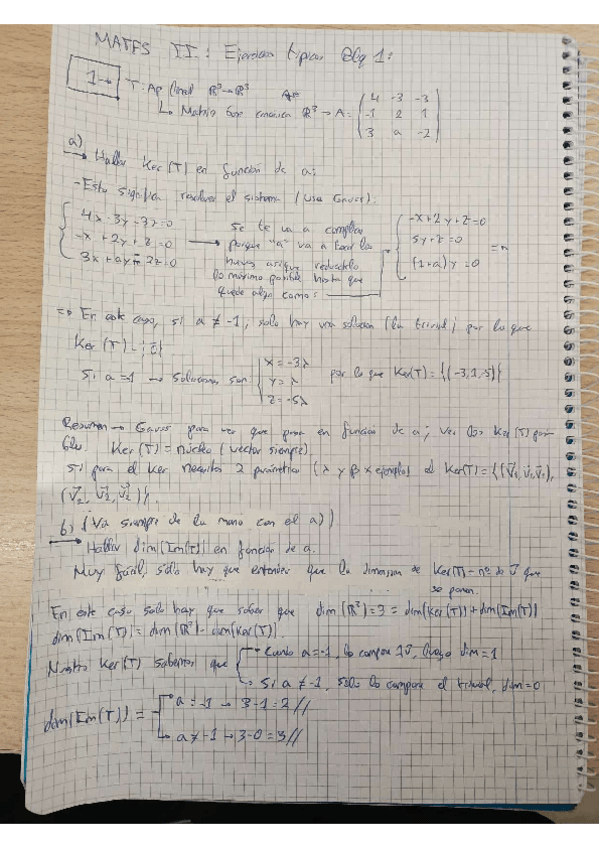 MATES II: Ejercicios típicos Blq 1:
1→ T: Ap. lineal R³→R³
↳ Matriz base canónica R³ → A = (4 -3 -3
-1 2 1
3 a -2)
a)
→ Hallar Ker(T) en función de a:
- Esto significa resolver el sistema (usa Gauss):
4x - 3y - 3z = 0
-x + 2y + z = 0
3x + ay - 2z = 0
→ Se te va a complicar
porque "a" va a tocar los
huevos asique reducetelo
lo máximo posible hasta que
quede algo como:
-x + 2y + z = 0
5y + z = 0
(1+a)y = 0
=>
=> En este caso, si a ≠ -1, solo hay una solución (la trivial) por lo que
Ker(T) = {0}
Si a = 1 → Soluciones son
x = -3λ
y = λ
z = -5λ
por lo que Ker(T) = {(-3,1,5)}
Resumen → Gauss para ver que pasa en función de a; ver los Ker(T)
Ker(T) = núcleo (vector siempre)
Si para el Ker necesitas 2 parámetros (λ y β x ejemplo) el Ker(T) = {(V₁,V₁,V₁),
(V₂,V₂,V₂)}.
b) (Va siempre de la mano con el a))
→ Hallar dim(Im(T)) en función de a.
Muy fácil, sólo hay que entender que la dimension de Ker(T) = nº de v que
se ponen.
En este caso solo hay que saber que dim(R³) = 3 = dim(Ker(T)) + dim(Im(T))
dim(Im(T)) = dim(R³) - dim(Ker(T)).
Nuestro Ker(T) sabemos que
Cuando a = -1, lo compone 1 v, luego dim = 1
Si a ≠ -1, sólo lo compone el trivial, dim = 0
dim(Im(T)) =
a = -1 → 3-1 = 2 //
a ≠ -1 → 3-0 = 3 //